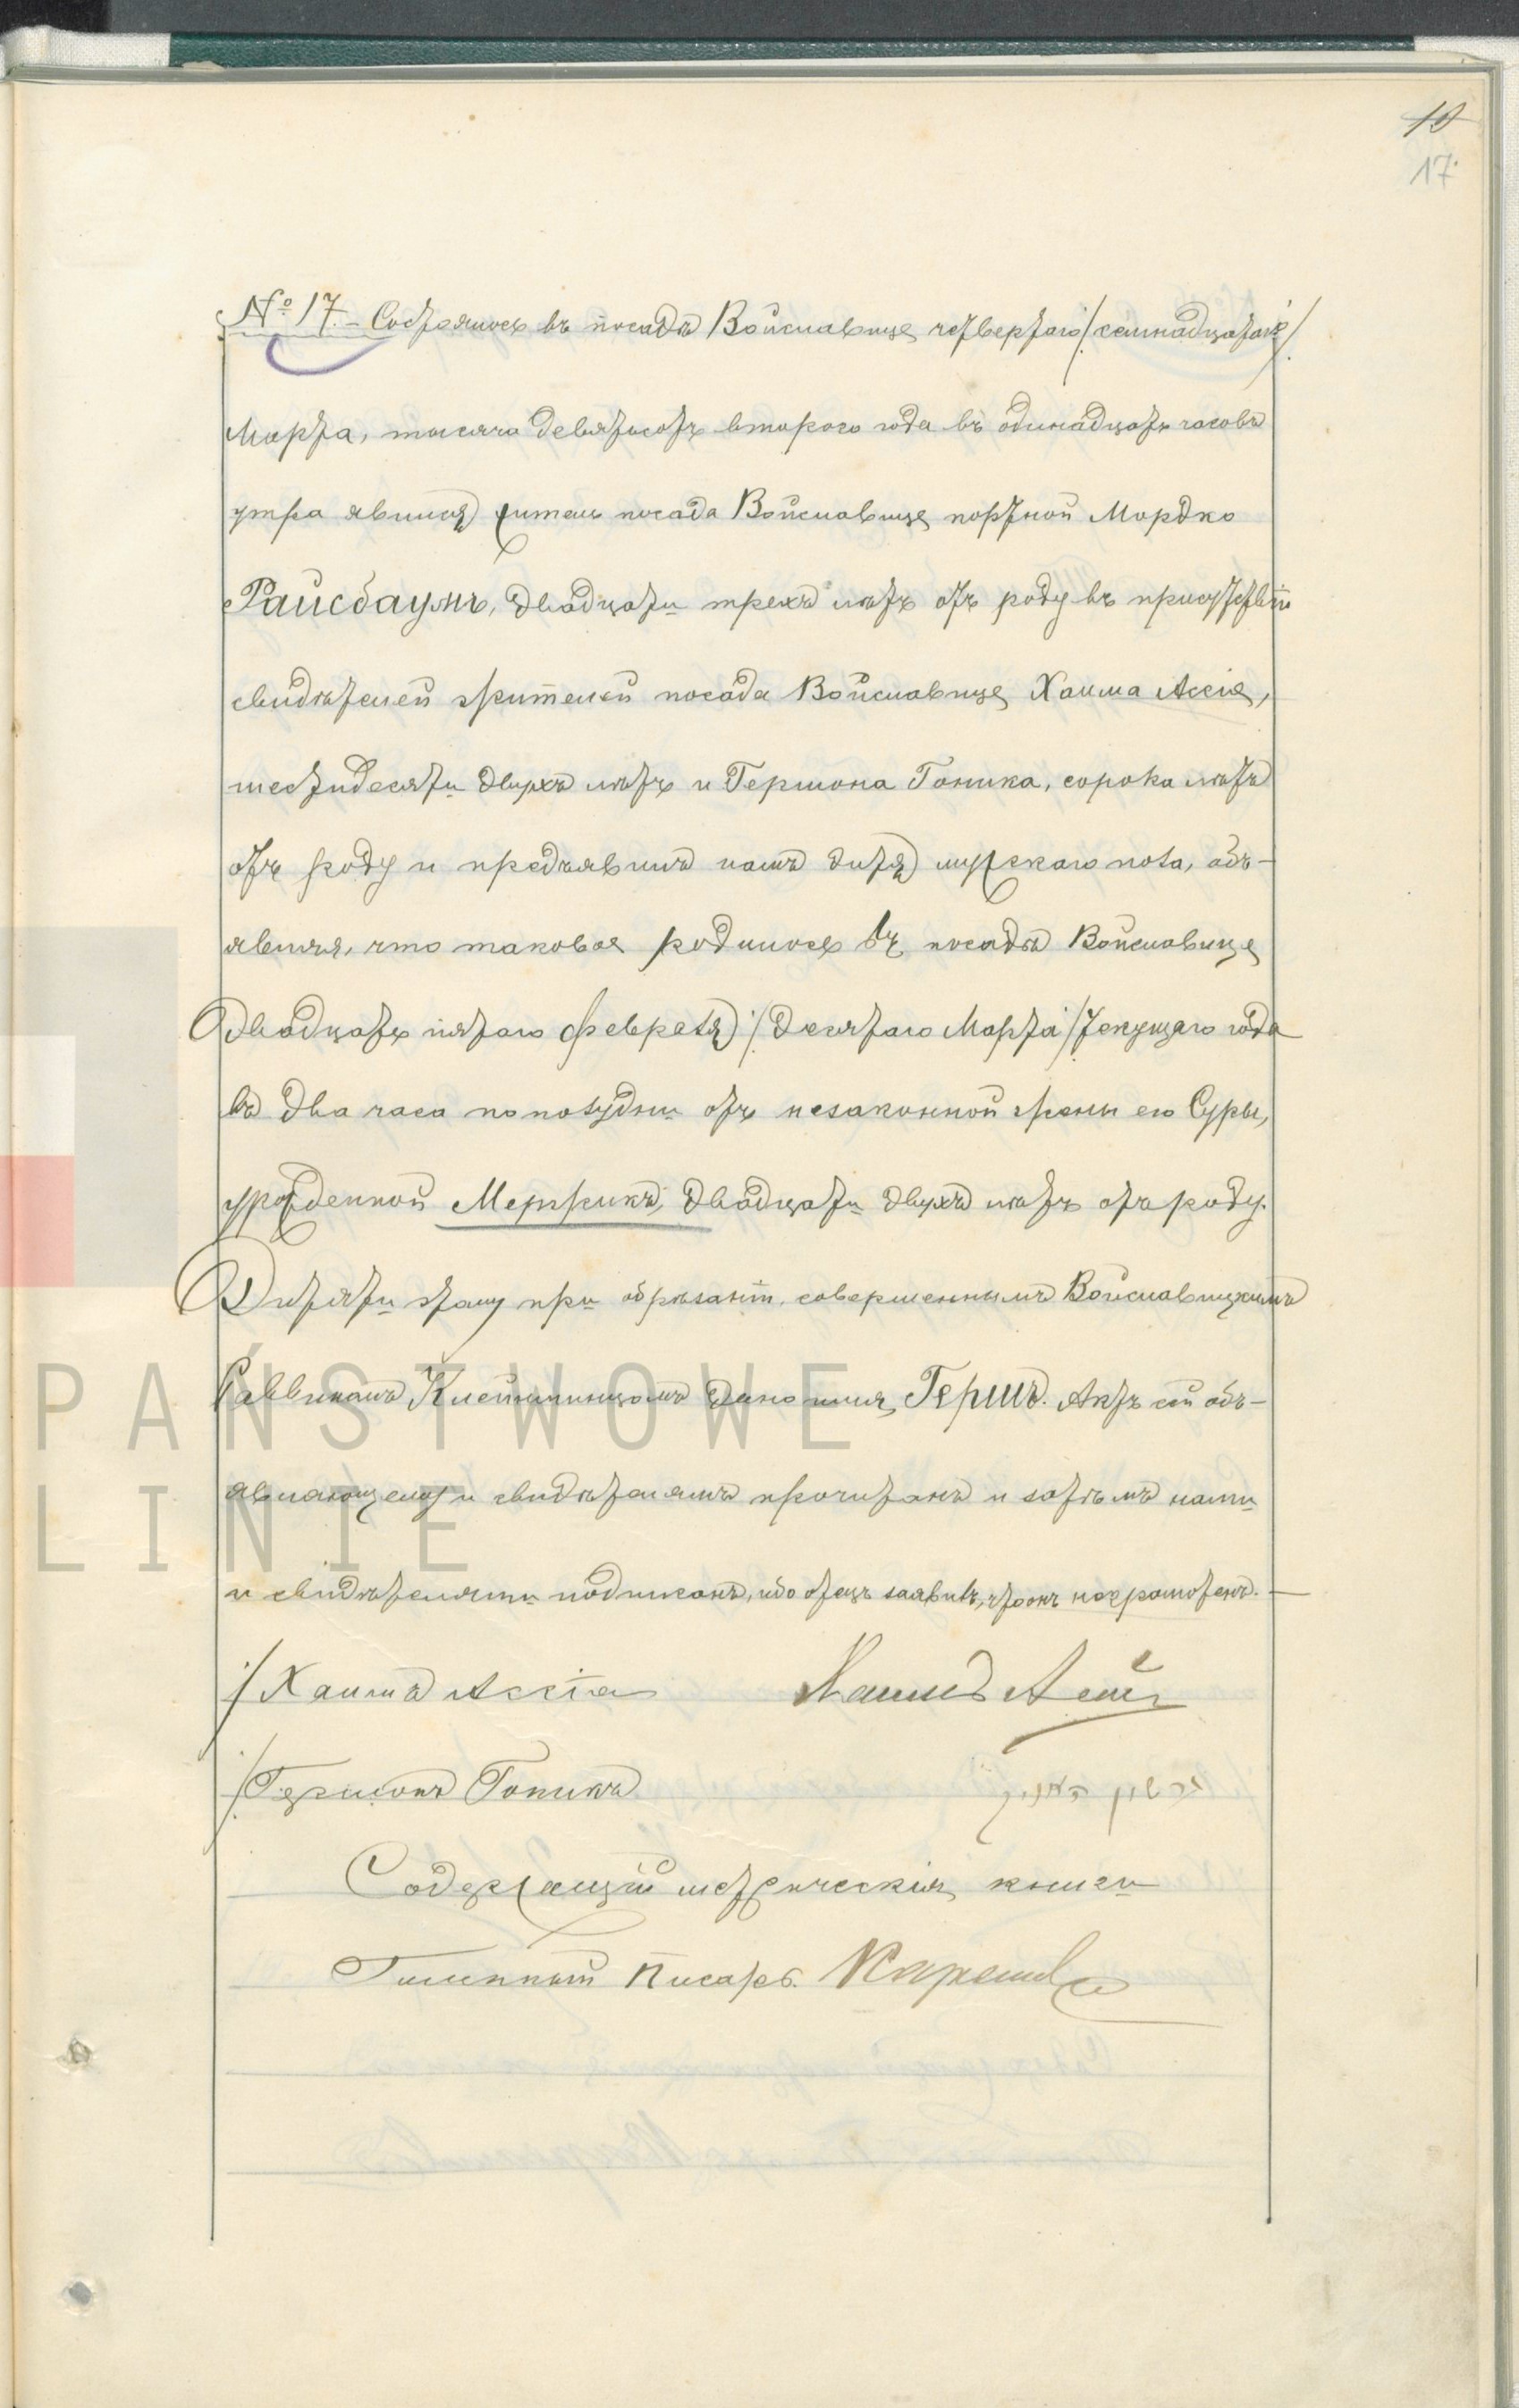 10
17
№ 17. - Состоялось въ посадѣ Войславице четвертаго /семнадцатаго/
Марта, тысяча девятьсотъ второго года въ одинадцать часовъ
утра явился житель посада Войславице портной Мордко
Райсбаумъ, двадцати трехъ лѣтъ отъ роду въ присутствіи
свидѣтелей жителей посада Войславице Хаима Ассія,
шестидесяти двухъ лѣтъ и Гершона Гоника, сорока лѣтъ
отъ роду и предъявилъ намъ дитя мужскаго пола, объ-
являя, что таковое родилось въ посадѣ Войславице
двадцать пятаго февраля /десятаго Марта/ текущаго года
въ два часа пополудни отъ незаконной жены его Суры,
урожденной двадцати двухъ лѣтъ отъ роду.
Дитяти этому при обрѣзаніи, совершеннымъ Войславицкимъ
Раввиномъ Клейнминцомъ дано имя Гершъ. Актъ сей объ-
являющему и свидѣтелямъ прочитанъ и затѣмъ нами
и свидѣтелями подписанъ, ибо отецъ заявилъ, что онъ неграмотенъ. -
/Хаимъ Ассія Хаимъ
/Гершонъ Гоникъ גרשון האניק
Содержащій метрическія книги
Гминный Писарь
PAŃSTWOWE
LINIE